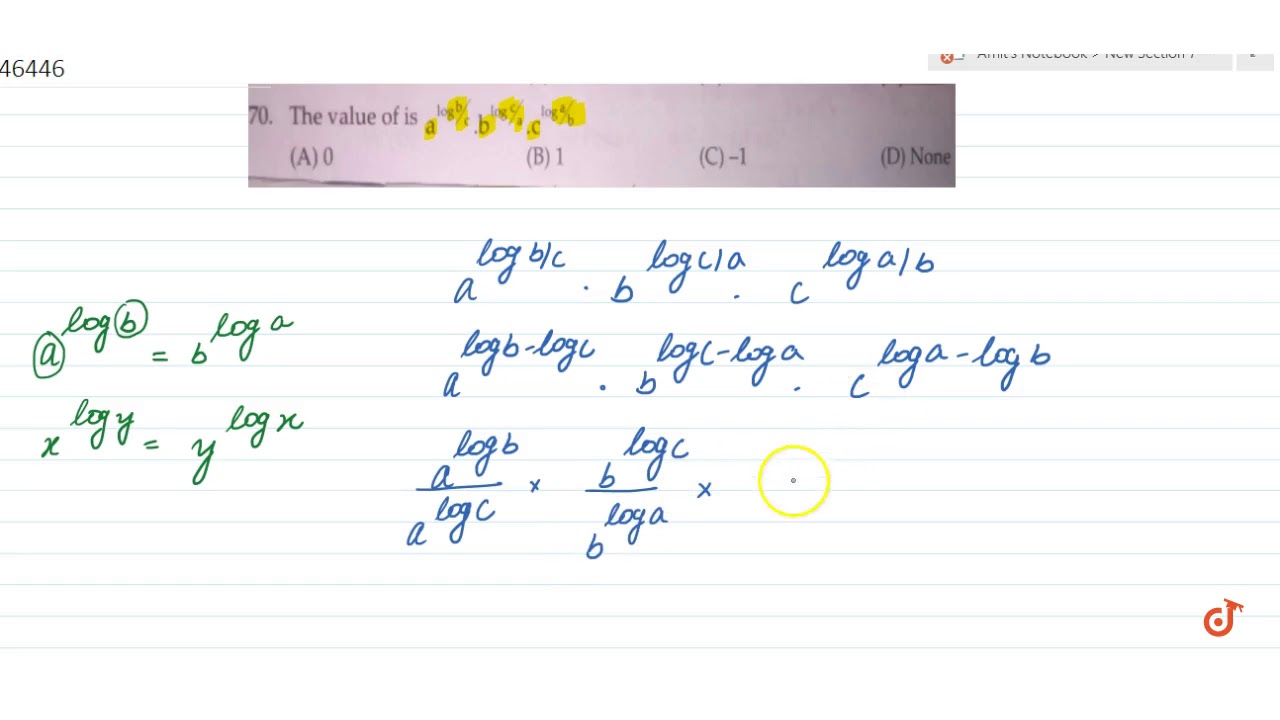 46446
Amit's Notebook > New Section 7
70. The value of is a^log b/c .b^log c/a .c^log a/b
(A) 0 (B) 1 (C) –1 (D) None
a^log b/c . b^log c/a . c^log a/b
a^log b = b^log a
a^log b - log c . b^log c - log a . c^log a - log b
x^log y = y^log x
a^log b / a^log c × b^log c / b^log a ×